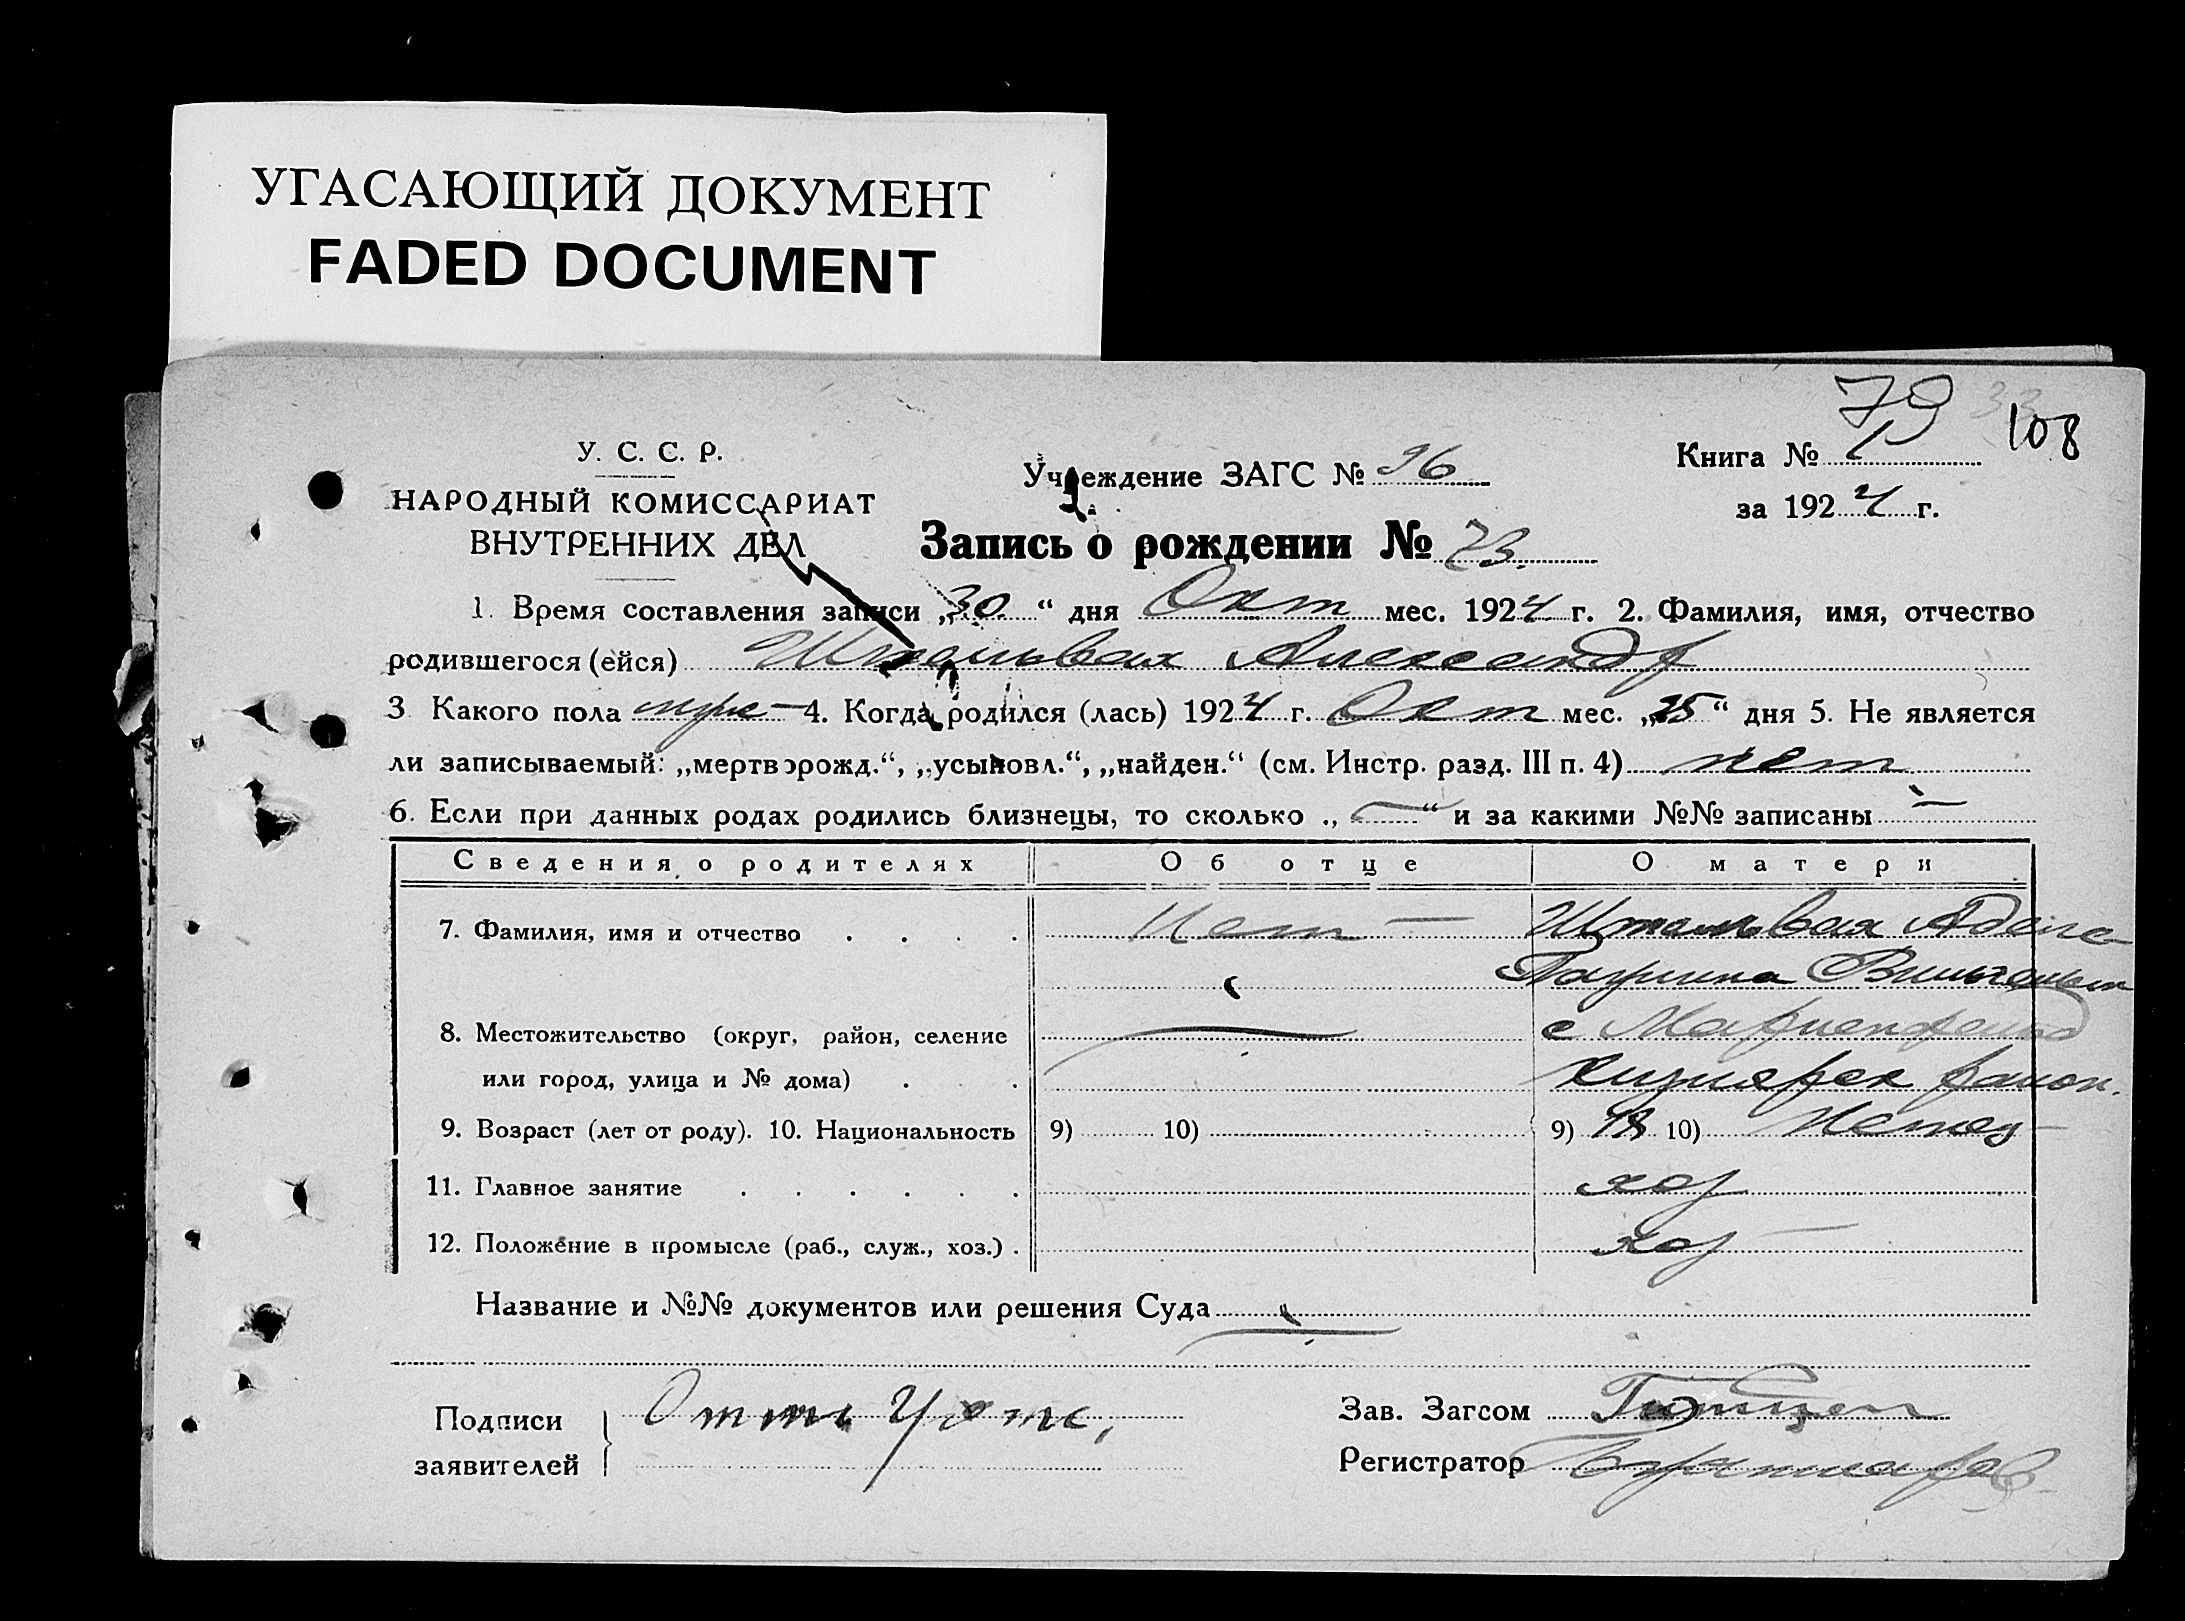 УГАСАЮЩИЙ ДОКУМЕНТ
FADED DOCUMENT
79 33 108
У. С. С. Р.
НАРОДНЫЙ КОМИССАРИАТ
ВНУТРЕННИХ ДЕЛ
Учреждение ЗАГС № 96
Книга № 1
за 1924 г.
Запись о рождении № 73.
1. Время составления записи „30“ дня Окт мес. 1924 г. 2. Фамилия, имя, отчество
родившегося (ейся) Александр
3 Какого пола муж — 4. Когда родился (лась) 1924 г. Окт мес. „25“ дня 5. Не является
ли записываемый: „мертворожд.“, „усыновл.“, „найден.“ (см. Инстр. разд. III п. 4) нет
6. Если при данных родах родились близнецы, то сколько „ — “ и за какими №№ записаны —
Сведения о родителях Об отце О матери
7. Фамилия, имя и отчество . . . . Нет —
8. Местожительство (округ, район, селение с Мариенфельд
или город, улица и № дома) . . . район.
9. Возраст (лет от роду). 10. Национальность 9) 10) 9) 18 10)
11. Главное занятие . . . . . . хоз
12. Положение в промысле (раб., служ., хоз.) . хоз —
Название и №№ документов или решения Суда
Подписи
заявителей
Зав. Загсом
Регистратор